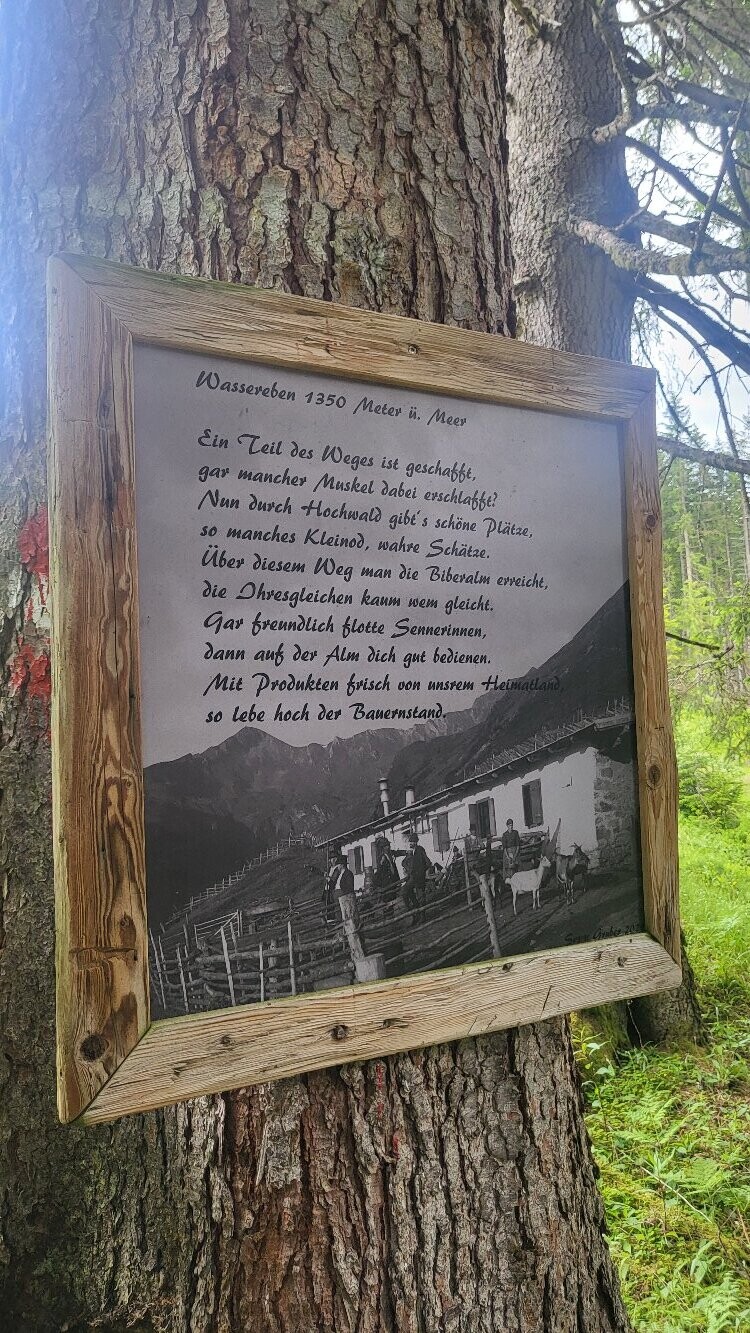 Wassereben 1350 Meter ü. Meer
Ein Teil des Weges ist geschafft,
gar mancher Muskel dabei erschlafft?
Nun durch Hochwald gibt's schöne Plätze,
so manches Kleinod, wahre Schätze.
Über diesem Weg man die Biberalm erreicht,
die Ihresgleichen kaum wem gleicht.
Gar freundlich flotte Sennerinnen,
dann auf der Alm dich gut bedienen.
Mit Produkten frisch von unsrem Heimatland,
so lebe hoch der Bauernstand.